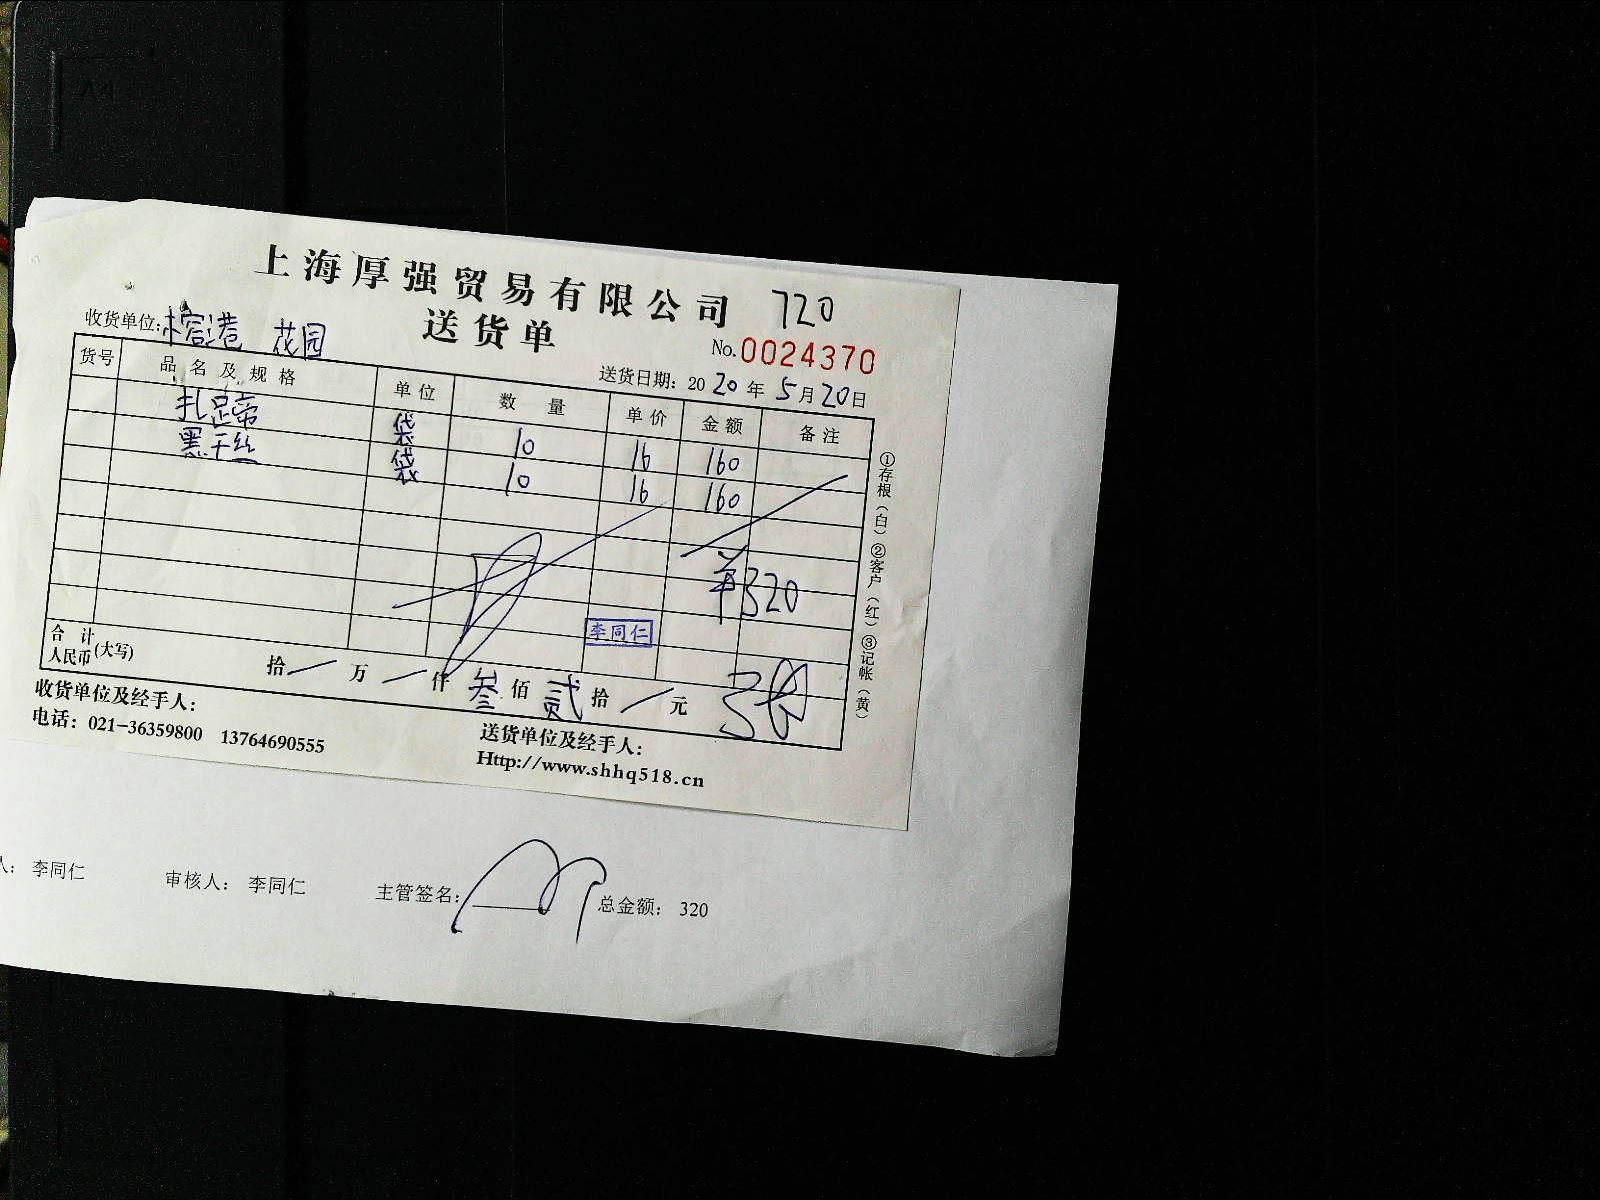 A4
上海厚强贸易有限公司 720
送货单
收货单位: 榕港 花园
No. 0024370
送货日期: 2020年5月20日
货号 品名及规格 单位 数量 单价 金额 备注
扎足帝 袋 10 16 160
黑干丝 袋 10 16 160
¥320
李同仁
合计人民币(大写) 拾 万 仟 叁佰 贰拾 元
收货单位及经手人:
送货单位及经手人:
电话: 021-36359800 13764690555
Http://www.shhq518.cn
①存根(白)②客户(红)③记帐(黄)
人: 李同仁 审核人: 李同仁 主管签名: 总金额: 320